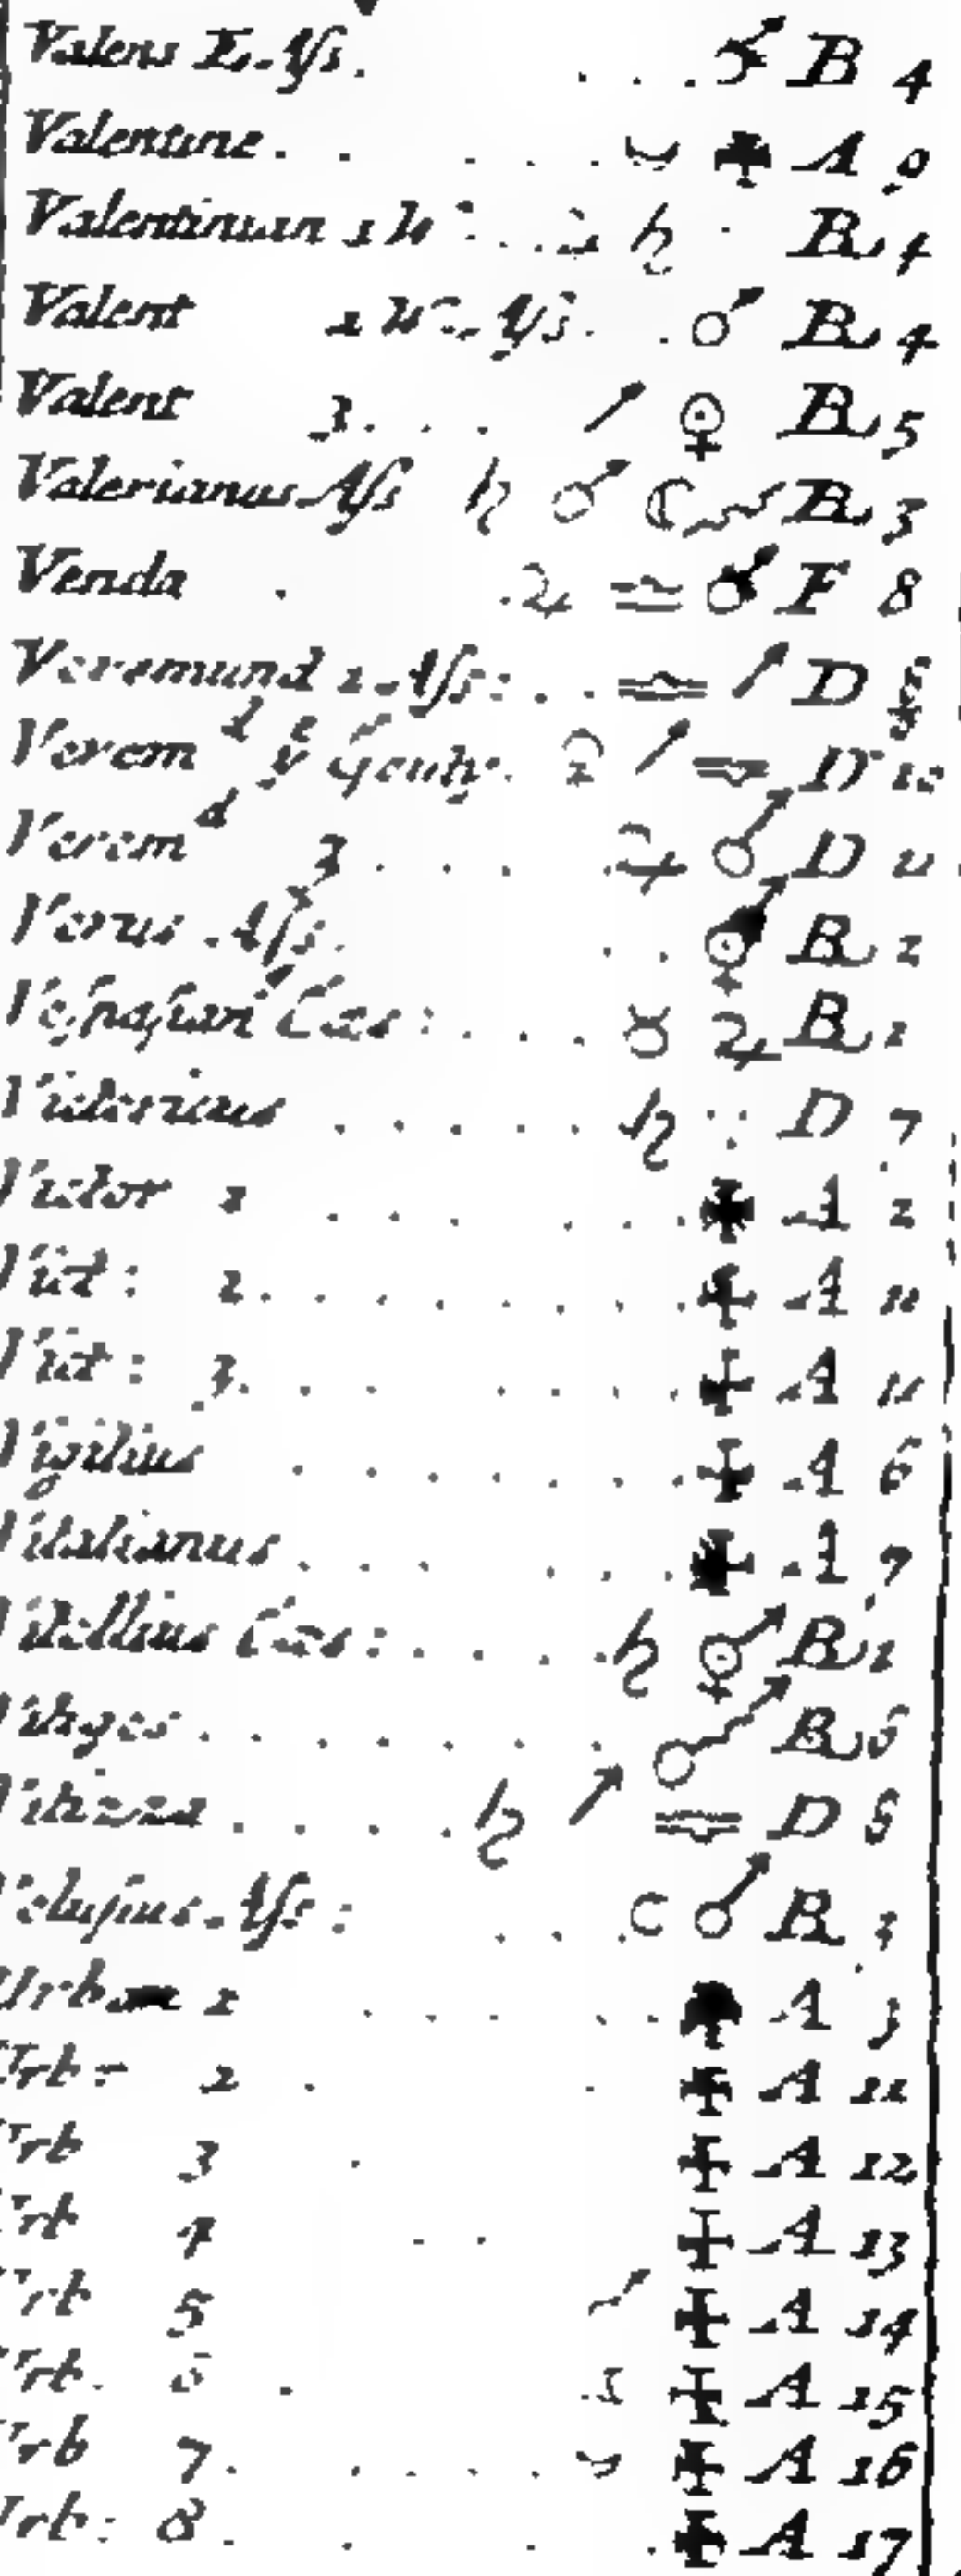 Valens E. Ass. . . . ♂ B 4
Valentine . . . . . . ✠ A 9
Valentinian 1 . . . ♃ ♄ B 4
Valent 2 Ass. . ♂ B 4
Valent 3. . . ♀ B 5
Valerianus Ass ♄ ♂ ☾ B 3
Venda . ♃ ♎ ♂ F 8
Veremund 1. Ass: . . ♎ D
Verem^d y^e Gouty. ♀ ♎ D 10
Verem^d 3 . . . ♃ ♂ D 11
Verus Ass. . . B 2
Vespasian Cæs: . . . ♉ ♃ B 1
Victoricus . . . . . ♄ D 7
Victor 1 . . . . . . ✠ A 2
Vict: 2. . . . . . . . ✠ A 11
Vict: 3. . . . . . . ✠ A 11
Vigilius . . . . . . . ✠ A 6
Vitalianus . . . . . . . ✠ A 7
Vitellius Cæs: . . . . ♄ B 1
Vitiges . . . . . . . ♂ B 6
Vitizza . . . . . ♄ ♎ D 8
Volusius. Ass: . . . ☾ ♂ B 3
Urban 1 . . . . . ✠ A 3
Urb: 2 . . ✠ A 11
Urb 3 . ✠ A 12
Urb 4 . . ✠ A 13
Urb 5 ✠ A 14
Urb. 6 . ✠ A 15
Urb 7. . . . . ✠ A 16
Urb: 8. . . . ✠ A 17